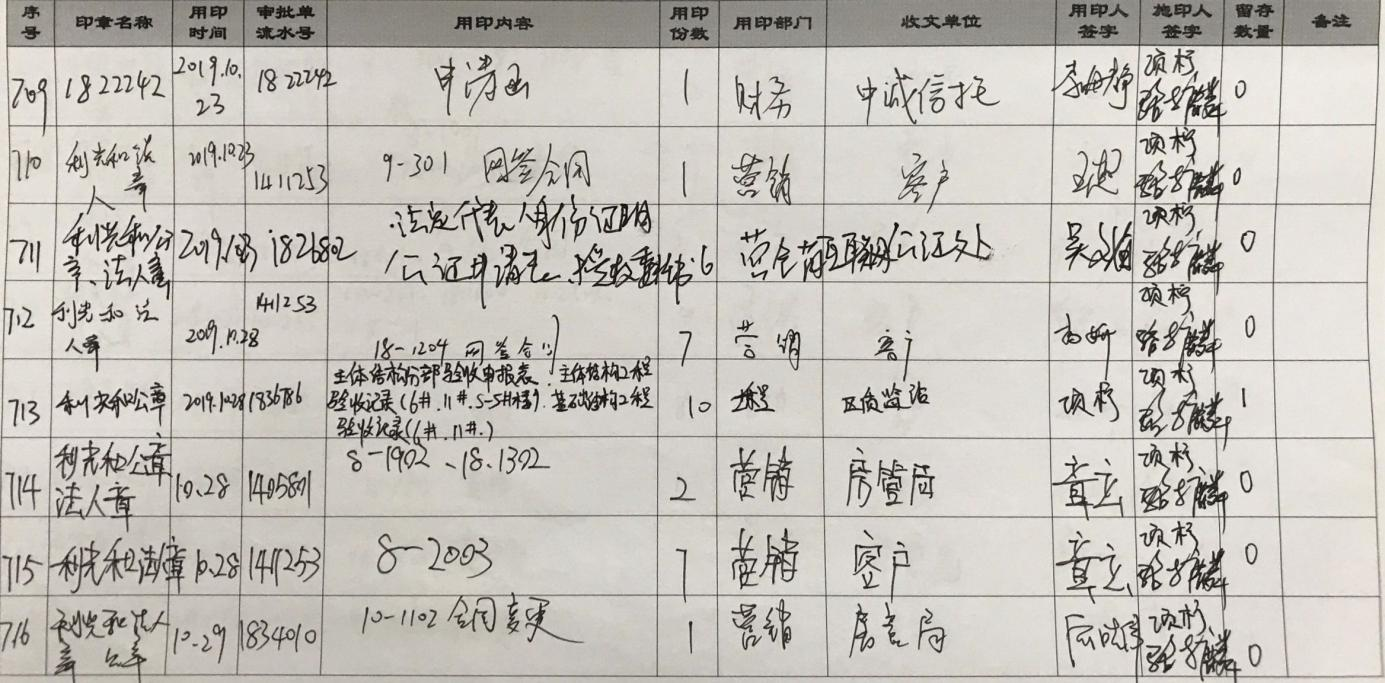 序号 印章名称 用印时间 审批单流水号 用印内容 用印份数 用印部门 收文单位 用印人签字 施印人签字 留存数量 备注
709 1822242 2019.10.23 1822242 申请函 1 财务 中诚信托 李 静 项杉 0
710 利光和法人章 2019.10.23 1411253 9-301 网签合同 1 营销 客户 王 项杉 0
711 利光和公章、法人章 2019. 1826802 法定代表人身份证明 公证申请表、授权委托书 6 营销 互联网公证处 吴 项杉 0
712 利光和法人章 2019.10.28 1411253 18-1204 网签合同 7 营销 客户 项杉 0
713 利光和公章 2019.10.28 1836786 主体结构分部验收申报表、主体结构工程
验收记录(6#.11#.S-5#楼)、基础结构工程
验收记录(6#.11#.) 10 工程 区质监站 项杉 项杉 1
714 利光和公章 法人章 10.28 1405801 8-1902、18.1302 2 营销 房管局 章立 项杉 0
715 利光和法人章 10.28 1411253 8-2003 7 营销 客户 章立 项杉 0
716 利光和法人章 公章 10.29 1834010 10-1102 合同变更 1 营销 房管局 项杉 0